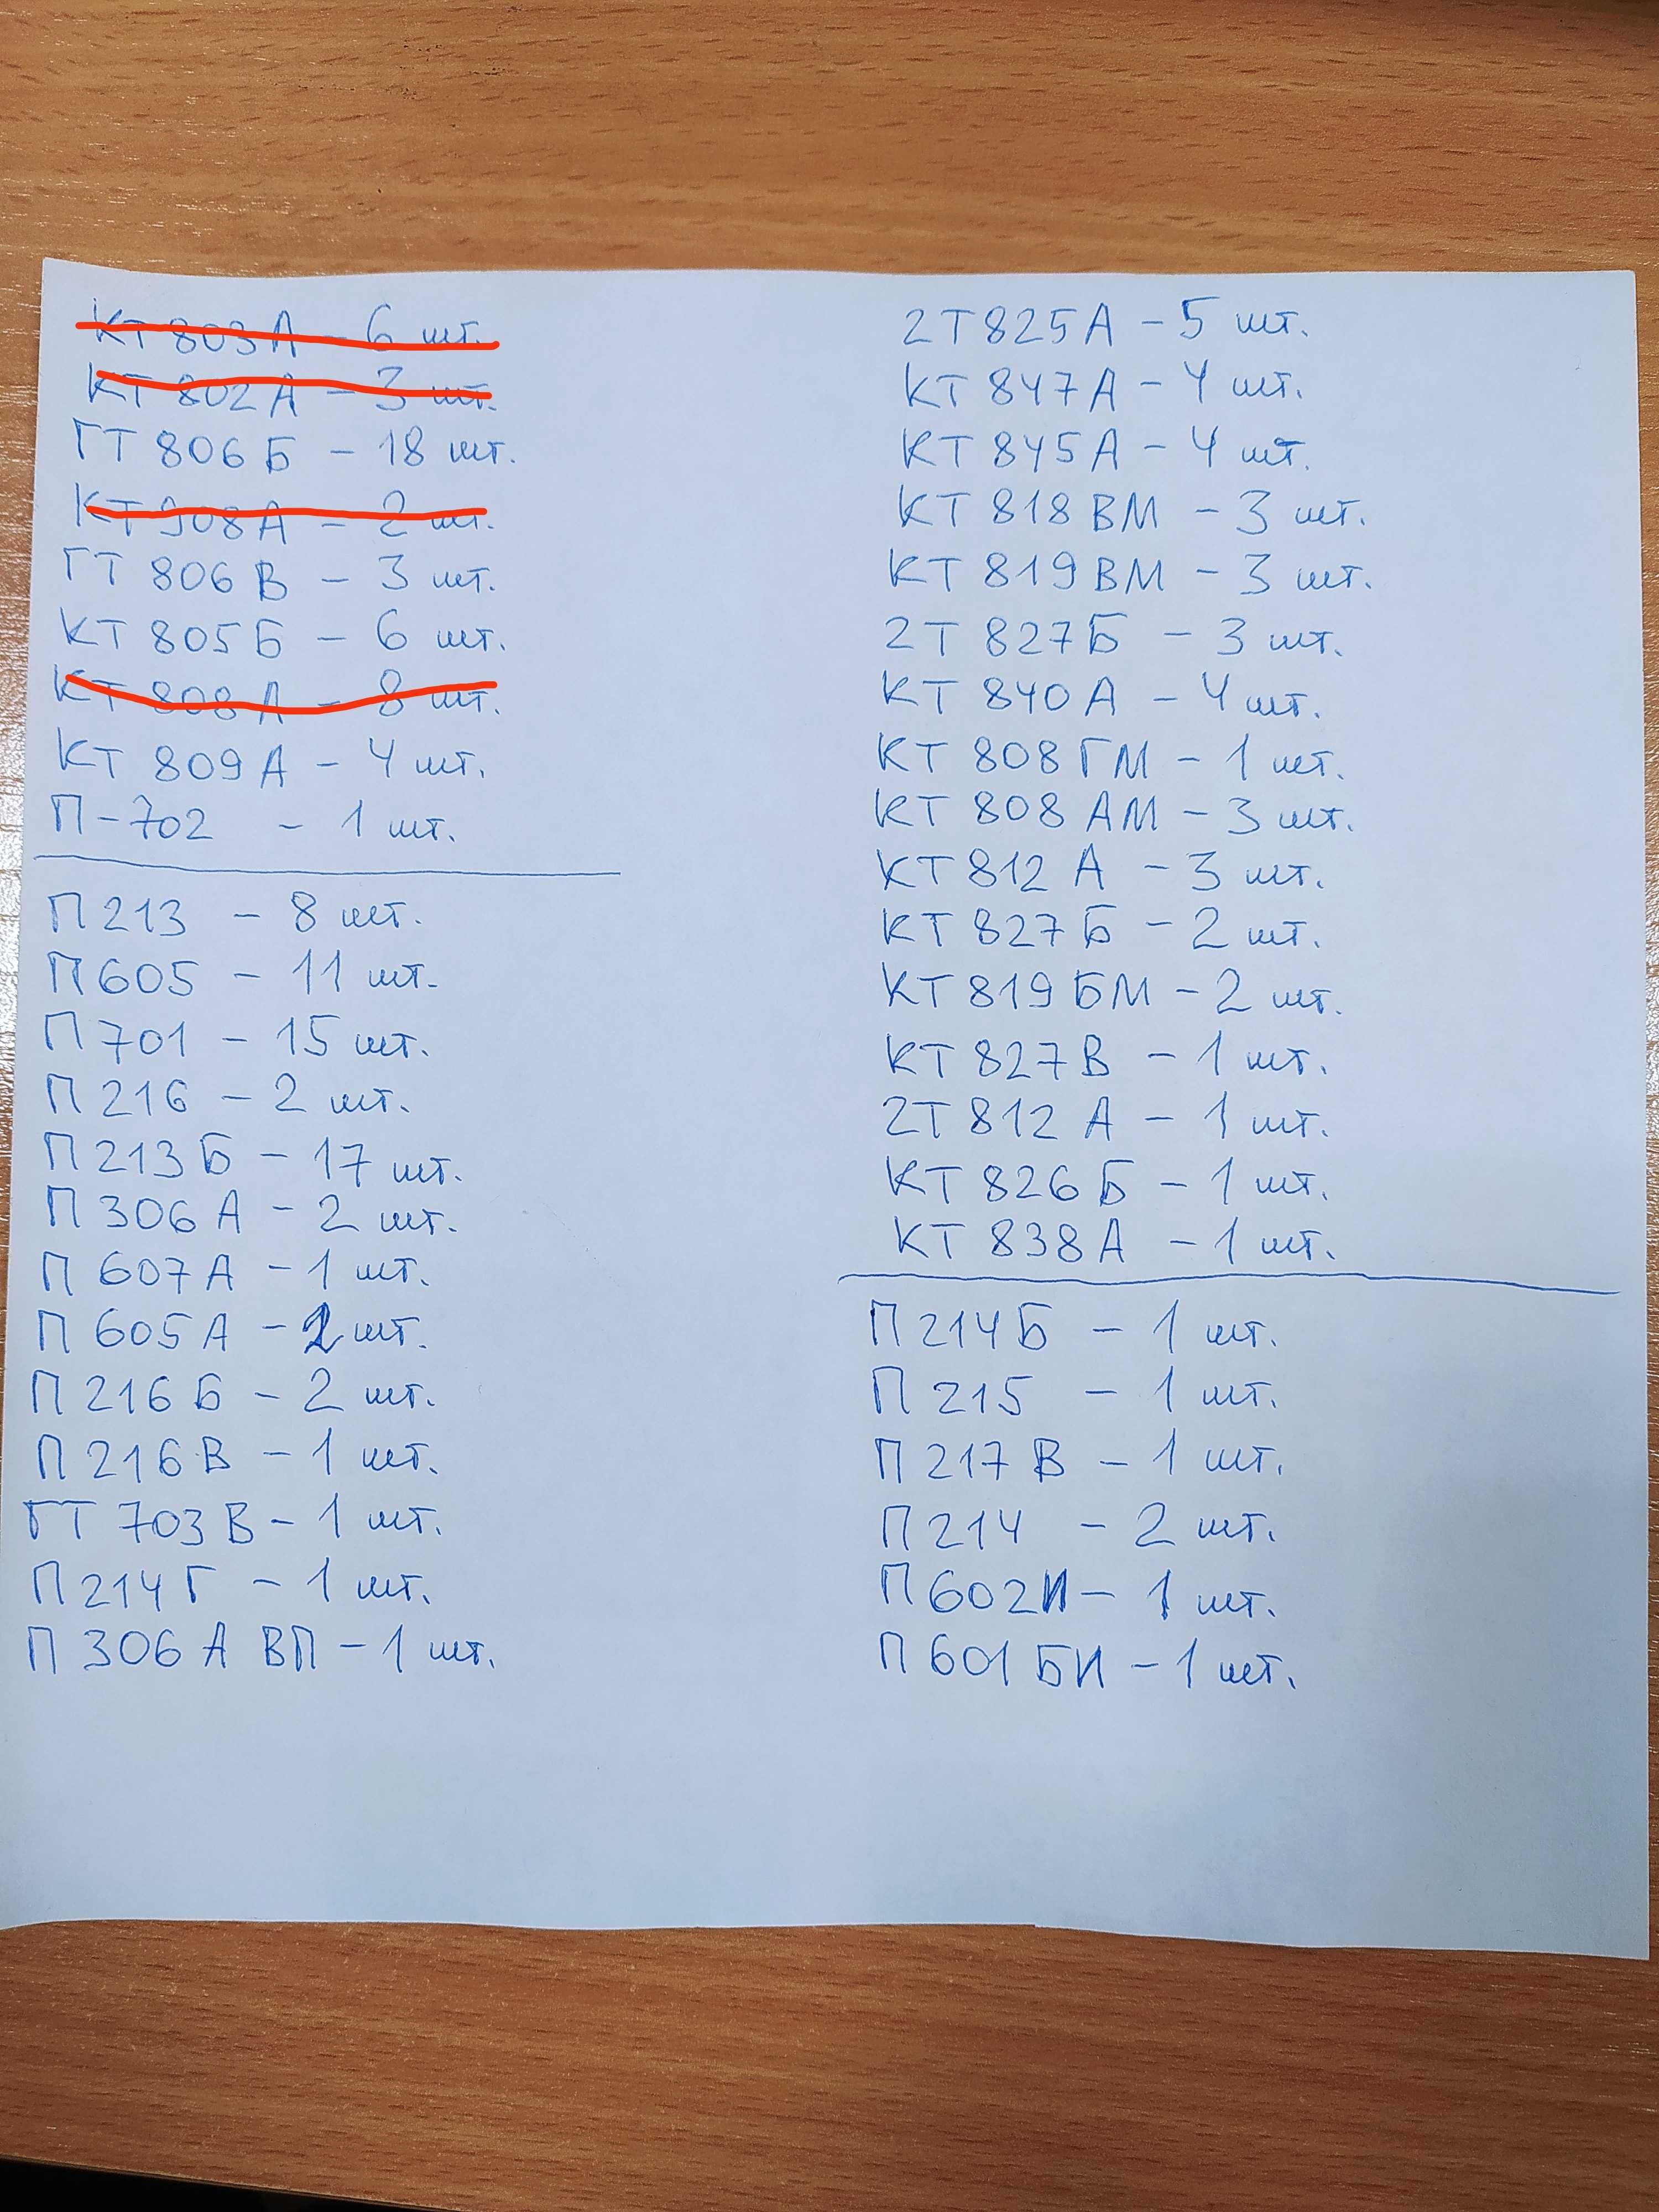 КТ 803А - 6 шт.
КТ 802А - 3 шт.
ГТ 806Б - 18 шт.
КТ 908А - 2 шт.
ГТ 806В - 3 шт.
КТ 805Б - 6 шт.
КТ 808А - 8 шт.
КТ 809А - 4 шт.
П-702 - 1 шт.
П213 - 8 шт.
П605 - 11 шт.
П701 - 15 шт.
П216 - 2 шт.
П213Б - 17 шт.
П306А - 2 шт.
П607А - 1 шт.
П605А - 2 шт.
П216Б - 2 шт.
П216В - 1 шт.
ГТ703В - 1 шт.
П214Г - 1 шт.
П306А ВП - 1 шт.
2Т825А - 5 шт.
КТ847А - 4 шт.
КТ845А - 4 шт.
КТ818ВМ - 3 шт.
КТ819ВМ - 3 шт.
2Т827Б - 3 шт.
КТ840А - 4 шт.
КТ808ГМ - 1 шт.
КТ808АМ - 3 шт.
КТ812А - 3 шт.
КТ827Б - 2 шт.
КТ819БМ - 2 шт.
КТ827В - 1 шт.
2Т812А - 1 шт.
КТ826Б - 1 шт.
КТ838А - 1 шт.
П214Б - 1 шт.
П215 - 1 шт.
П217В - 1 шт.
П214 - 2 шт.
П602И - 1 шт.
П601БИ - 1 шт.